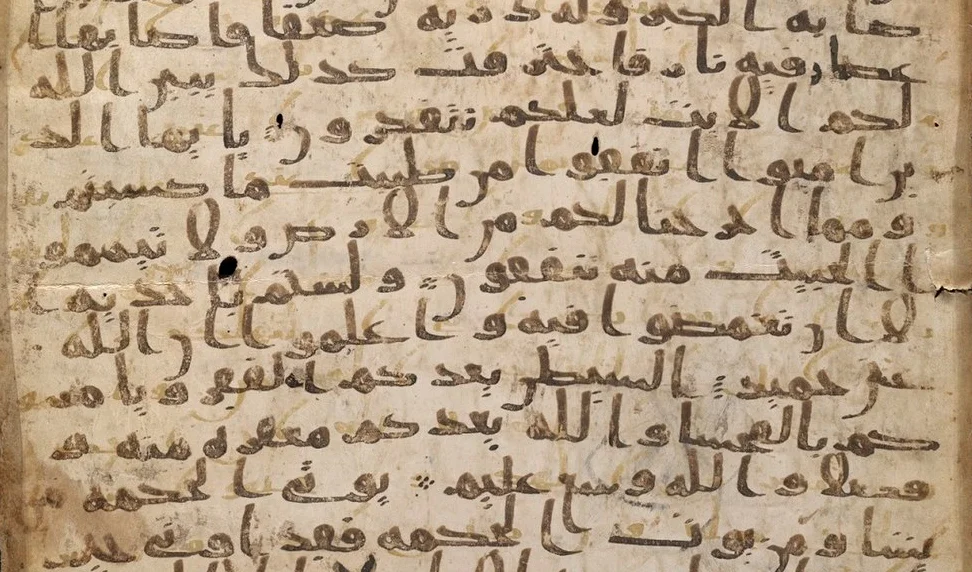 صابه الكبر وله ذريه ضعفا فاصابها ا
عصار فيه نار فاحترقت كذلك يبين الله
لكم الايت لعلكم تتفكرون يايها الذ
ين امنوا انفقوا من طيبت ما كسبتم
ومما اخرجنا لكم من الارض ولا تيممو
ا الخبيث منه تنفقون ولستم باخذيه ا
لا ان تغمضوا فيه واعلموا ان الله
غني حميد الشيطن يعدكم الفقر ويامر
كم بالفحشا والله يعدكم مغفره منه و
فضلا والله وسع عليم يوتي الحكمه من
يشا ومن يوت الحكمه فقد اوتي